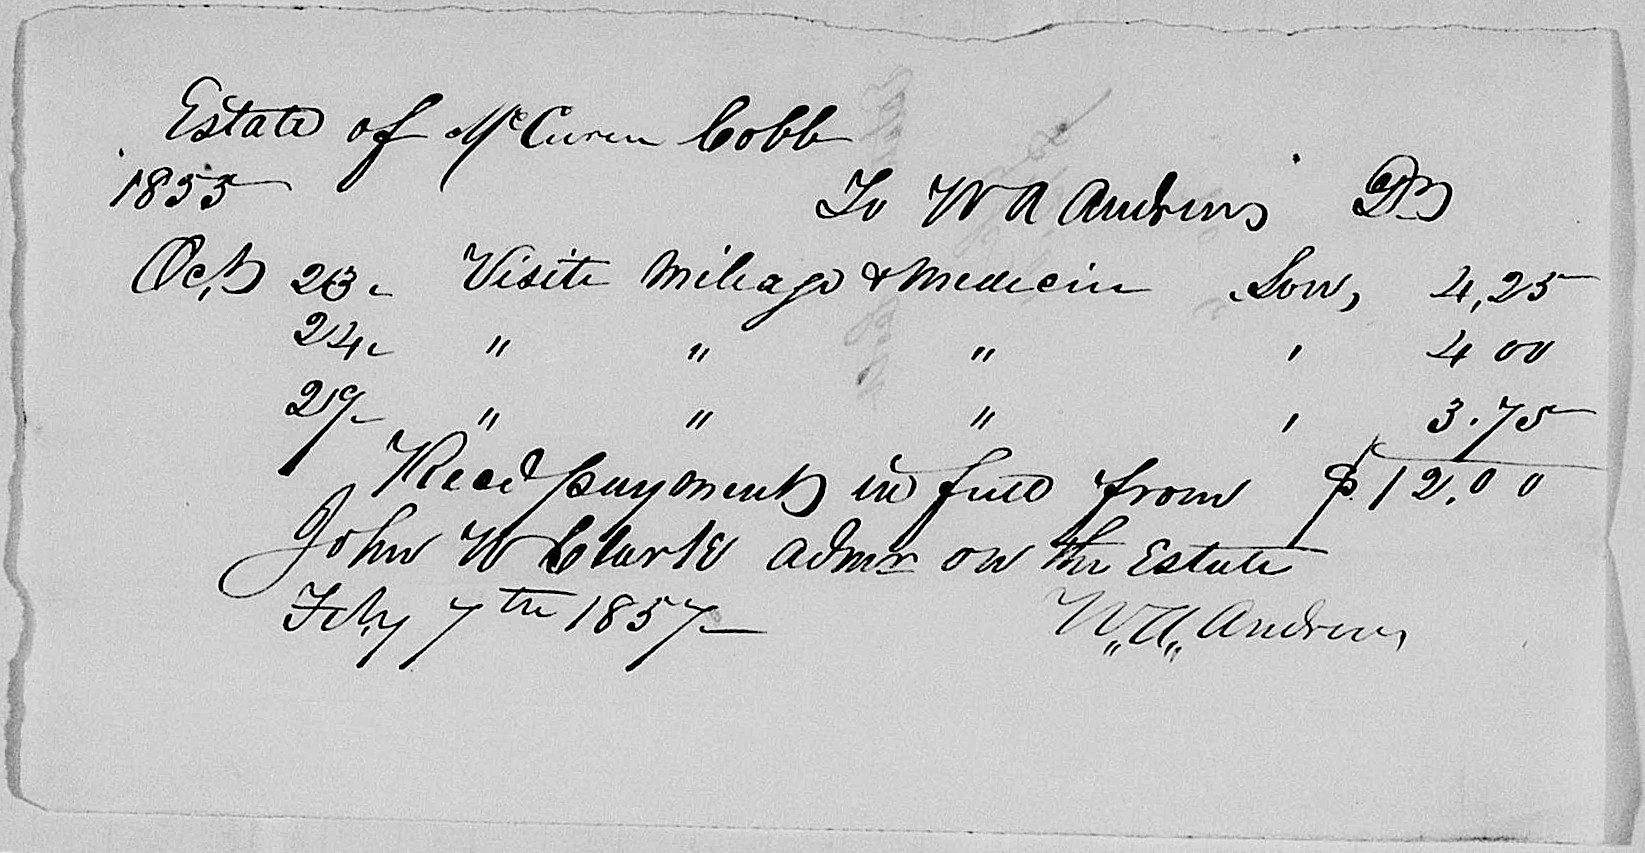 Estate of McCuren Cobb
1855
To W A Andrews Dr
Oct 23 Visite Mileage & Medecin Son, 4,25
24 " " " ' 4 00
29 " " " ' 3.75
Recd payment in full from $12.00
John W Clark admr on the Estate
Feby 7th 1857
W. A. Andrews